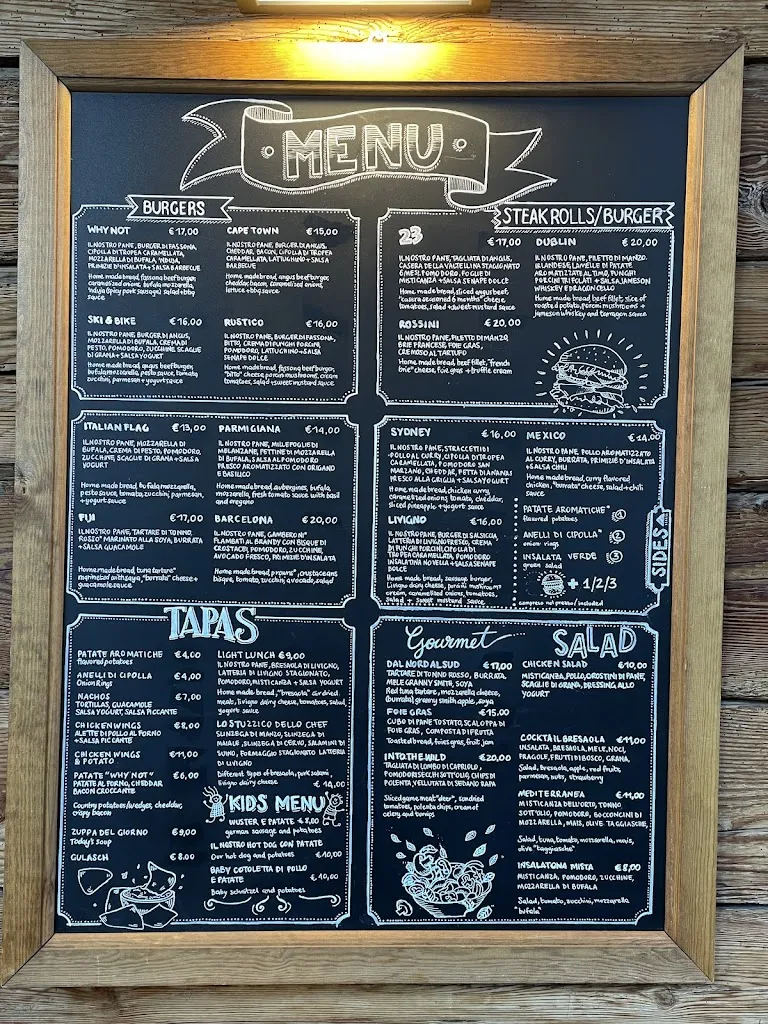 MENU
BURGERS
WHY NOT €17,00
IL NOSTRO PANE, BURGER DI FASSONA,
CIPOLLA DI TROPEA CARAMELLATA,
MOZZARELLA DI BUFALA, 'NDUJA,
PRIMIZIE D'INSALATA + SALSA BARBECUE
Home made bread, fassona beef burger,
caramelized onion, bufula mozzarella,
'nduja (spicy pork sausage) salad + bbq
sauce
CAPE TOWN €15,00
IL NOSTRO PANE, BURGER DI ANGUS,
CHEDDAR, BACON, CIPOLLA DI TROPEA
CARAMELLATA, LATTUGHINO + SALSA
BARBECUE
Home made bread, angus beef burger,
cheddar, bacon, caramelized onions,
lettuce + bbq sauce
SKI & BIKE €16,00
IL NOSTRO PANE, BURGER DI ANGUS,
MOZZARELLA DI BUFALA, CREMA DI
PESTO, POMODORO, ZUCCHINE, SCAGLIE
DI GRANA + SALSA YOGURT
Home made bread, angus beef burger,
bufula mozzarella, pesto sauce, tomato,
zucchini, parmesan + yogurt sauce
RUSTICO €16,00
IL NOSTRO PANE, BURGER DI FASSONA,
BITTO, CREMA DI FUNGHI PORCINI,
POMODORO, LATTUGHINO + SALSA
SENAPE DOLCE
Home made bread, fassona beef burger,
"bitto" cheese, porcini mushrooms, cream
tomatoes, salad + sweet mustard sauce
STEAK ROLLS/BURGER
23 €17,00
IL NOSTRO PANE, TAGLIATA DI ANGUS,
CASERA DELLA VALTELLINA STAGIONATO
6 MESI, POMODORO, FOGLIE DI
MISTICANZA + SALSA SENAPE DOLCE
Home made bread, sliced angus beef,
"casera seasoned 6 months" cheese,
tomatoes, salad + sweet mustard sauce
DUBLIN €20,00
IL NOSTRO PANE, FILETTO DI MANZO
IRLANDESE, LAMELLE DI PATATE
AROMATIZZATE AL TIMO, FUNGHI
PORCINI TRIFOLATI + SALSA JAMESON
WHISKEY E DRAGONCELLO
Home made bread, beef fillet, slice of
roasted potato, porcini mushrooms +
jameson whiskey and tarragon sauce
ROSSINI €20,00
IL NOSTRO PANE, FILETTO DI MANZO,
BRIE FRANCESE, FOIE GRAS,
CREMOSO AL TARTUFO
Home made bread, beef fillet, "french
brie" cheese, foie gras + truffle cream
ITALIAN FLAG €13,00
IL NOSTRO PANE, MOZZARELLA DI
BUFALA, CREMA DI PESTO, POMODORO,
ZUCCHINE, SCAGLIE DI GRANA + SALSA
YOGURT
Home made bread, bufala mozzarella,
pesto sauce, tomato, zucchini, parmesan,
+ yogurt sauce
PARMIGIANA €14,00
IL NOSTRO PANE, MILLEFOGLIE DI
MELANZANE, FETTINE DI MOZZARELLA
DI BUFALA, SALSA AL POMODORO
FRESCO AROMATIZZATO CON ORIGANO
E BASILICO
Home made bread, aubergines, bufala,
mozzarella, fresh tomato sauce with basil
and oregano
FIJI €17,00
IL NOSTRO PANE, TARTARE DI TONNO,
ROSSO MARINATO ALLA SOYA, BURRATA
+ SALSA GUACAMOLE
Home made bread, tuna tartare
marinated with soya, "burrata" cheese +
guacamole sauce
BARCELONA €20,00
IL NOSTRO PANE, GAMBERONI
FLAMBATI AL BRANDY CON BISQUE DI
CROSTACEI, POMODORO, ZUCCHINE,
AVOCADO FRESCO, PRIMIZIE D'INSALATA
Home made bread, prawns, crustaceans
bisque, tomato, zucchini, avocado, salad
SYDNEY €16,00
IL NOSTRO PANE, STRACCETTI DI
POLLO AL CURRY, CIPOLLA DI TROPEA
CARAMELLATA, POMODORO SAN
MARZANO, CHEDDAR, FETTA DI ANANAS
FRESCO ALLA GRIGLIA + SALSA YOGURT
Home made bread, chicken curry,
caramelized onions, tomato, cheddar,
sliced pineapple + yogurt sauce
MEXICO €14,00
IL NOSTRO PANE, POLLO AROMATIZZATO
AL CURRY, BURRATA, PRIMIZIE D'INSALATA
+ SALSA CHILI
Home made bread, curry flavored
chicken, "burrata" cheese, salad + chili
sauce
LIVIGNO €16,00
IL NOSTRO PANE, BURGER DI SALSICCIA,
LATTERIA DI LIVIGNO FRESCO, CREMA
DI FUNGHI PORCINI, CIPOLLA DI
TROPEA CARAMELLATA, POMODORO
INSALATINA NOVELLA + SALSA SENAPE
DOLCE
Home made bread, sausage, burger,
livigno dairy cheese, porcini mushrooms
cream, caramelized onions, tomatoes,
salad + sweet mustard sauce
SIDES
PATATE AROMATICHE 1
flavored potatoes
ANELLI DI CIPOLLA 2
onion rings
INSALATA VERDE 3
green salad
+ 1/2/3
compreso nel prezzo / included
TAPAS
PATATE AROMATICHE €4,00
flavored potatoes
ANELLI DI CIPOLLA €4,00
Onion Rings
NACHOS €7,00
TORTILLAS, GUACAMOLE
SALSA YOGURT, SALSA PICCANTE
CHICKEN WINGS €8,00
ALETTE DI POLLO AL FORNO
+ SALSA PICCANTE
CHICKEN WINGS €11,00
& POTATO
PATATE "WHY NOT" €6,00
PATATE AL FORNO, CHEDDAR
BACON CROCCANTE
Country potatoes/wedges, cheddar,
crispy bacon
ZUPPA DEL GIORNO €9,00
Today's soup
GULASCH €8,00
LIGHT LUNCH €9,00
IL NOSTRO PANE, BRESAOLA DI LIVIGNO,
LATTERIA DI LIVIGNO STAGIONATO,
POMODORO, MISTICANZA + SALSA YOGURT
Home made bread, "bresaola" air dried
meat, livigno dairy cheese, tomatoes, salad,
yogurt sauce
LO STUZZICO DELLO CHEF
SLINZEGA DI MANZO, SLINZEGA DI
MAIALE, SLINZEGA DI CERVO, SALAMINI DI
SUINO, FORMAGGIO STAGIONATO LATTERIA
DI LIVIGNO
Different types of bresaola, pork salami,
livigno dairy cheese
€14,00
KIDS MENU
WUSTER E PATATE €8,00
german sausage and potatoes
IL NOSTRO HOT DOG CON PATATE
Our hot dog and potatoes €10,00
BABY COTOLETTA DI POLLO
E PATATE €10,00
Baby schnitzel and potatoes
Gourmet
DAL NORD AL SUD €17,00
TARTARE DI TONNO ROSSO, BURRATA,
MELE GRANNY SMITH, SOYA
Red tuna tartare, mozzarella cheese,
(burrata) granny smith apple, soya
FOIE GRAS €15,00
CUBO DI PANE TOSTATO, SCALOPPA DI
FOIE GRAS, COMPOSTA DI FRUTTA
Toasted bread, foies gras, fruit jam
INTO THE WILD €20,00
TAGLIATA DI LOMBO DI CAPRIOLO,
POMODORI SECCHI SOTT'OLIO, CHIPS DI
POLENTA, VELLUTATA DI SEDANO RAPA
Sliced game meat "deer", candried
tomatoes, polenta chips, cream of
celery and turnips
SALAD
CHICKEN SALAD €10,00
MISTICANZA, POLLO, CROSTINI DI PANE,
SCAGLIE DI GRANA, DRESSING ALLO
YOGURT
COCKTAIL BRESAOLA €11,00
INSALATA, BRESAOLA, MELE, NOCI,
FRAGOLE, FRUTTI DI BOSCO, GRANA,
Salad, bresaola, apple, red fruits,
parmesan, nuts, strawberry
MEDITERRANEA €11,00
MISTICANZA DELL'ORTO, TONNO
SOTT'OLIO, POMODORO, BOCCONCINI DI
MOZZARELLA, MAIS, OLIVE TAGGIASCHE,
Salad, tuna, tomato, mozzarella, mais,
olive "taggiasche"
INSALATONA MISTA €8,00
MISTICANZA, POMODORO, ZUCCHINE,
MOZZARELLA DI BUFALA
Salad, tomato, zucchini, mozzarella
"bufala"